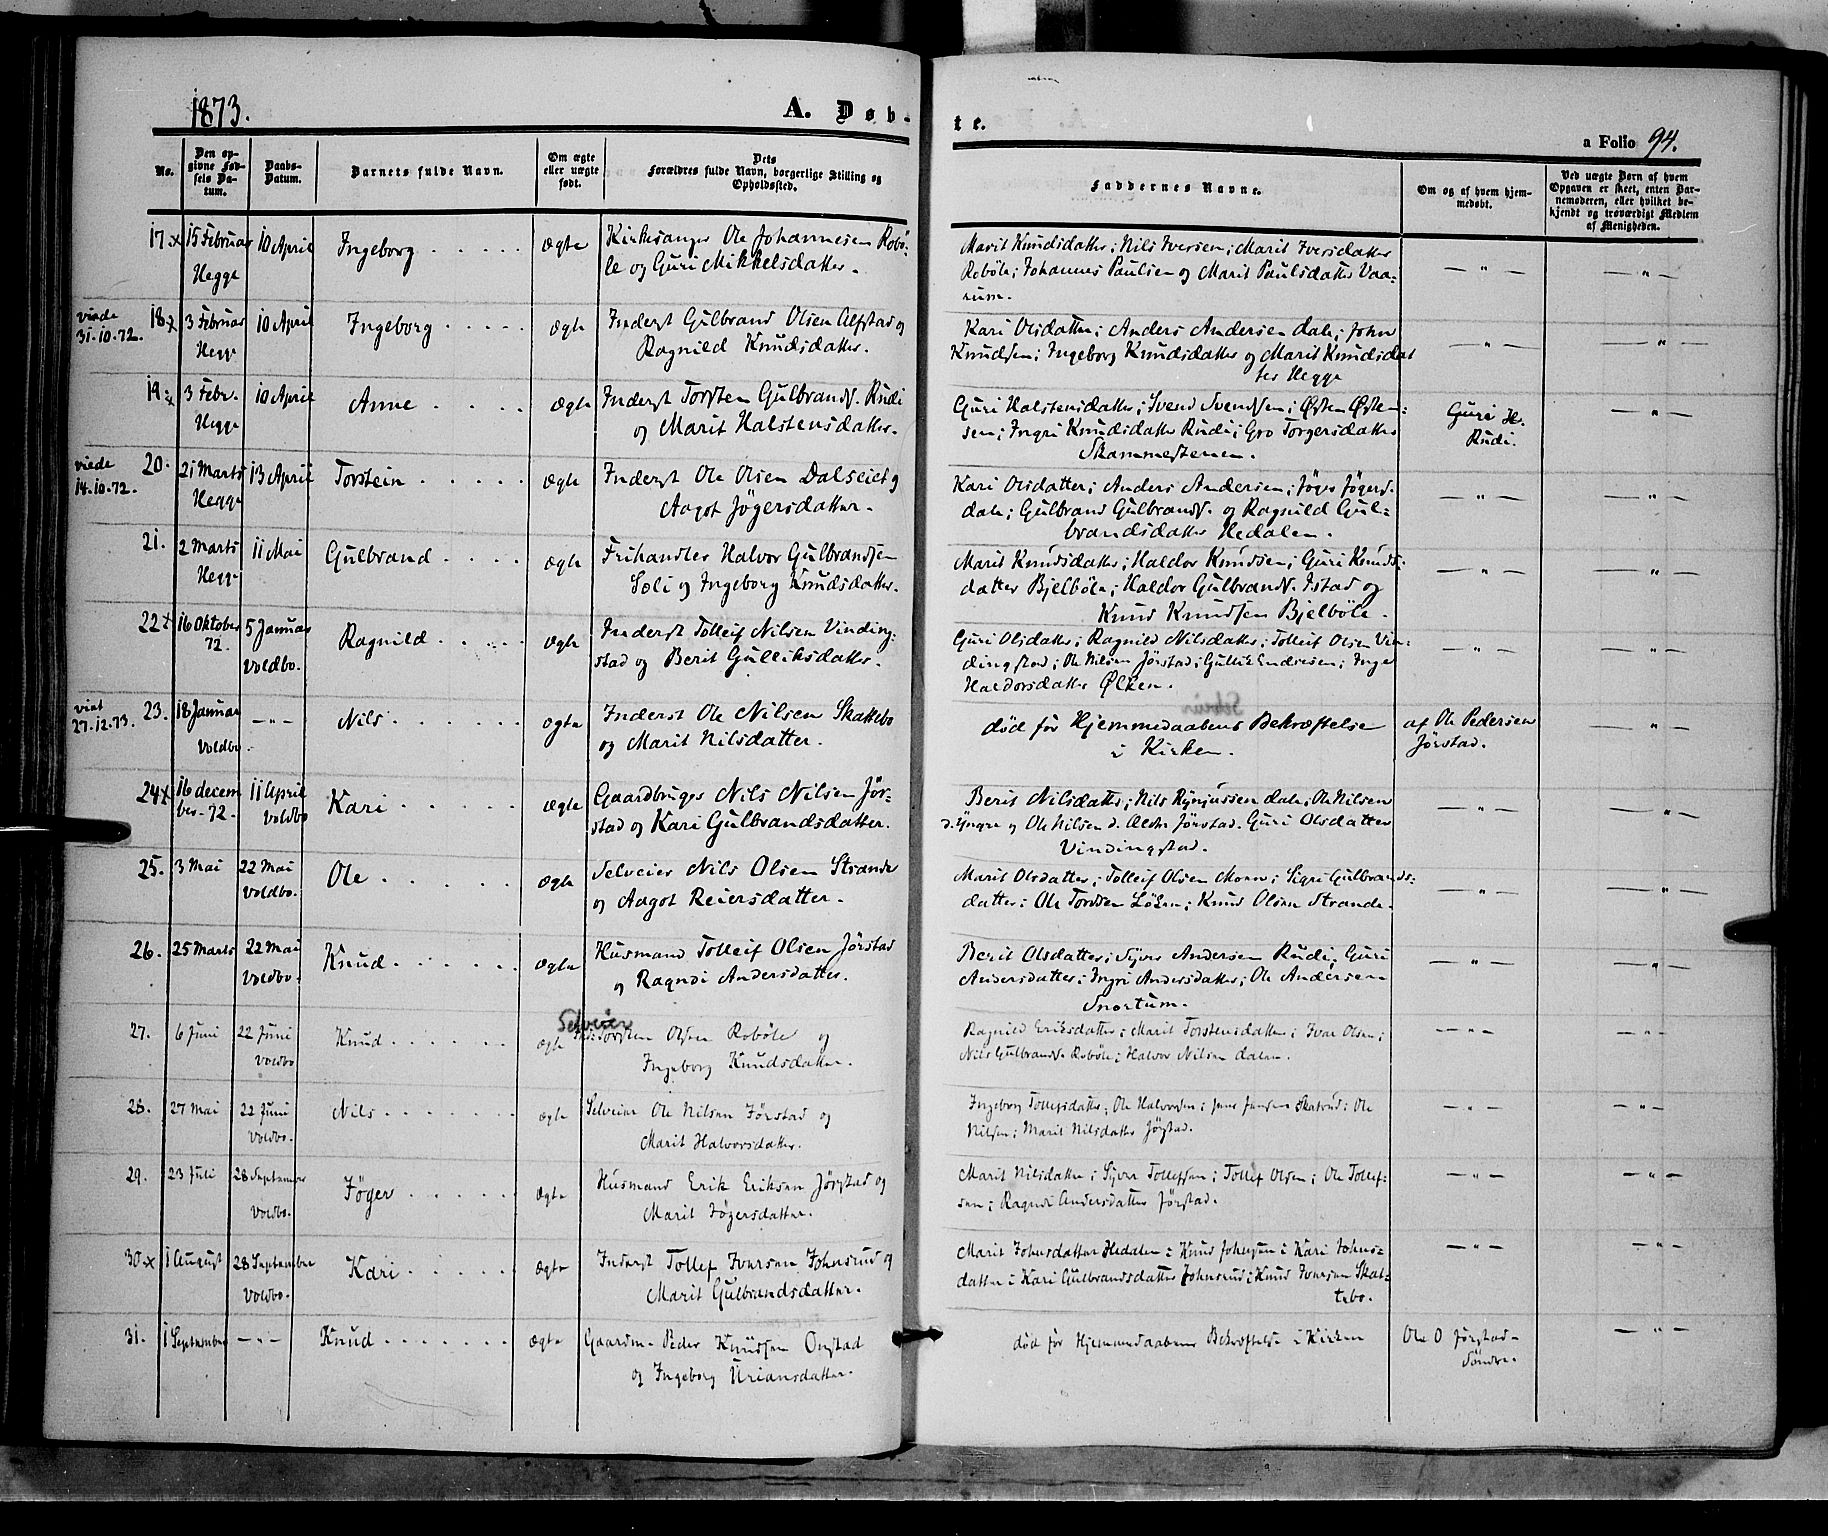 1873.
A. Døb-
te.
a Folio 94.
No.
Den op-
givne Fød-
sels Da-
tum.
Daabs-
Datum.
Barnets fulde Navn.
Om ægte
eller uægte
født.
Dets
Forældres fulde Navn, borgerlige Stilling og
Opholdssted.
Faddernes Navne.
Om og af hvem hjem-
medøbt.
Ved uægte Børn af hvem
Opgaven er skeet, enten Bar-
nemoderen, eller hvilket be-
kjendt og troværdigt Medlem
af Menigheden.
17.x 15 Februar 10 April Ingeborg ægte Kirkesanger Ole Johannesen Robö- Marit Knudsdatter; Nils Iversen; Marit Iversdatter — " — — " —
Hegge le og Guri Mikkelsdatter. Robøle; Johannes Paulsen og Marit Paulsdatter Vaa-
rum.
viede
31-10-72.
18.x 3 Februar 10 April Ingeborg ægte Inderst Gulbrand Olsen Alfstad og Kari Olsdatter; Anders Andersen dale; John — " — — " —
Hegge Ragnild Knudsdatter. Knudsen; Ingeborg Knudsdatter og Marit Knudsdat
ter Hegge
19.x 3 Febr. 10 April Anne ægte Inderst Torsten Gulbrands. Rudi Guri Halstensdatter; Svend Svendsen; Østen Østen- Guri H. — " —
Hegge og Marit Halstensdatter. sen; Ingri Knudsdatter Rudi; Gro Torgersdatter Rudi.
Skammestenen.
viede
14.10.72.
20. 21 Marts 13 April Torstein ægte Inderst Ole Olsen Dalseiet og Kari Olsdatter; Anders Andersen; Jøger Jøgers. — " — — " —
Hegge Aagot Jögersdatter. dale; Gulbrand Gulbrands. og Ragnild Gul-
brandsdatter Hedalen.
21. 2 Marts 11 Mai Gulbrand ægte Frihandler Halvor Gulbrandsen Marit Knudsdatter; Haldor Knudsen; Guri Knuds- — " — — " —
Hegge Soli og Ingeborg Knudsdatter. datter Bjelböle; Haldor Gulbrands. Istad og
Knud Knudsen Bjelböle.
22.x 16 Oktober 5 Januar Ragnild ægte Inderst Tolleif Nilsen Vinding- Guri Olsdatter; Ragnild Nilsdatter; Tolleif Olsen Vin- — " — — " —
72. Voldbo. stad og Berit Gulliksdatter. dingstad; Ole Nilsen Jörstad; Gullik Endresen; Inge
Haldorsdatter Ølken.
viet
27.12.73.
23. 18 Januar — " — Nils ægte Inderst Ole Nilsen Skattebo död før Hjemmedaabens Bekræftelse af Ole Pedersen — " —
Voldbo. og Marit Nilsdatter. i Kirken. Jörstad.
24.x 16 decem 11 April Kari ægte Gaardbruger Nils Nilsen Jör- Berit Nilsdatter; Nils dale; Ole Nilsen — " — — " —
ber-72. Voldbo stad og Kari Gulbrandsdatter. d. Yngre og Ole Nilsen d. Jörstad. Guri Olsdatter
Vindingstad.
25. 3 Mai 22 Mai Ole ægte Selveier Nils Olsen Strande Marit Olsdatter; Tolleif Olsen Moen; Sigri Gulbrands- — " — — " —
Voldbo. og Aagot Reiersdatter. datter; Ole Tordsen; Knud Olsen Strande.
26. 25 Marts 22 Mai Knud ægte Husmand Tolleif Olsen Jörstad Berit Olsdatter; Syver Andersen Rudi; Guri — " — — " —
Voldbo. og Ragndi Andersdatter. Andersdatter; Ingri Andersdatter; Ole Andersen
Snortum.
Selveier
27. 6 Juni 22 Juni Knud ægte Torsten Olsen Robøle og Ragnild Eriksdatter; Marit Torstensdatter; Ivar Olsen; — " — — " —
Voldbo Ingeborg Knudsdatter. Nils Gulbrands. Robøle; Halvor Nilsen dalen.
28. 27 Mai 22 Juni Nils ægte Selveier Ole Nilsen Jörstad og Ingeborg Tollefsdatter; Ole Halvorsen; Jens Jensen Skatrud; Ole — " — — " —
Voldbo. Marit Halvorsdatter. Nilsen; Marit Nilsdatter Jörstad.
29. 23 Juli 28 September Jöger ægte Husmand Erik Eriksen Jörstad og Marit Nilsdatter; Syver Tollefsen; Tollef Olsen; Ole Tollef- — " — — " —
Voldbo. Marit Jögersdatter. sen; Ragndi Andersdatter Jörstad.
30.x 1 August 28 September Kari ægte Inderst Tollef Iversen Johnsrud og Marit Johnsdatter Hedalen; Knud Johnsen; Kari Johns- — " — — " —
Voldbo. Marit Gulbrandsdatter. datter; Kari Gulbrandsdatter Johnsrud; Knud Iversen Skat-
tebo.
31. 1 September — " — Knud ægte Gaardm. Peder Knudsen Onstad död før Hjemmedaabens Bekræftelse i Kirken Ole O Jörstad — " —
og Ingeborg Uriansdatter. Söndre.